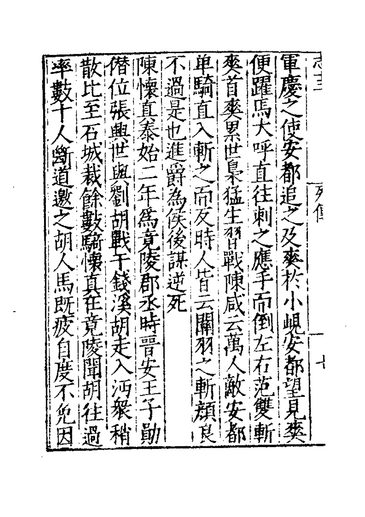 志三 列傳 七
軍慶之使安都追之及奭於小峴安都望見奭
便躍馬大呼直往刺之應手而倒左右范雙斬
奭首奭累世梟猛生習戰陳咸云萬人敵安都
单騎直入斬之而反時人皆云關羽之斬顔良
不過是也進爵為侯後謀逆死
陳懷直泰始二年為竟陵郡丞時晉安王子勛
僭位張興世與劉胡戰于錢溪胡走入沔衆稍
散比至石城裁餘數騎懷真在竟陵聞胡往過
率數十人斷道邀之胡人馬既疲自度不免因